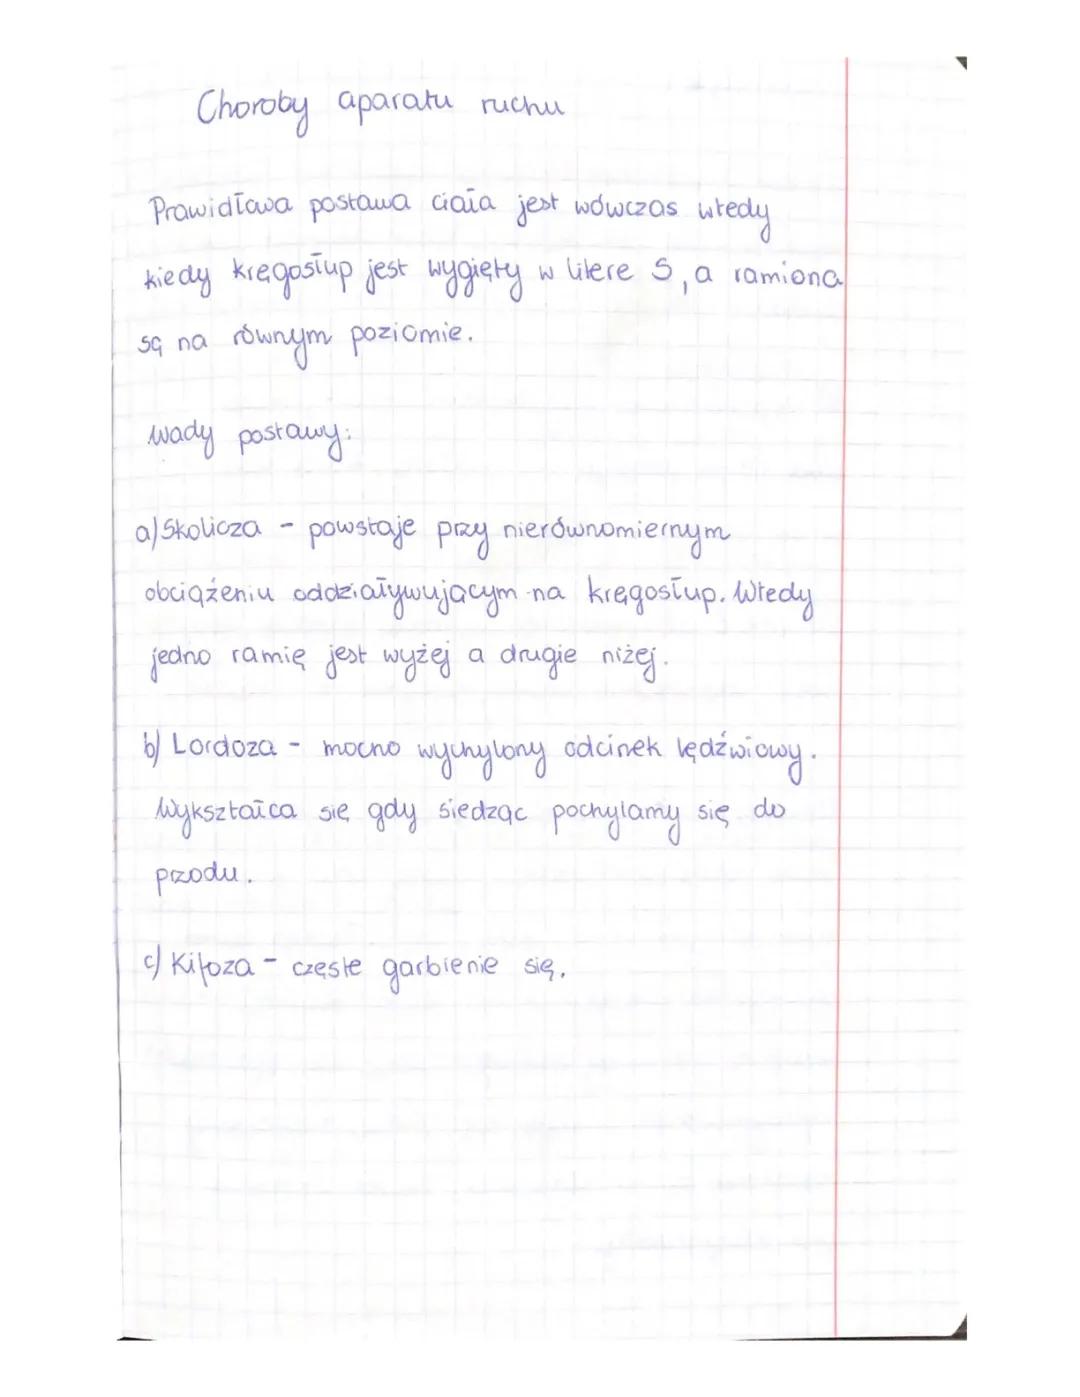 Choroby aparatu ruchu
Prawidłowa postawa ciała jest wówczas wtedy
kiedy kręgosłup jest wygięty w literę S, a ramiona
są na równym poziomie.
Wady postawy:
a) Skolioza - powstaje przy nierównomiernym
obciążeniu oddziaływującym na kręgosłup. Wtedy
jedno ramię jest wyżej a drugie niżej.
b) Lordoza - mocno wychylony odcinek lędźwiowy.
Wykształca się gdy siedząc pochylamy się do
przodu.
c) Kifoza - częste garbienie się.